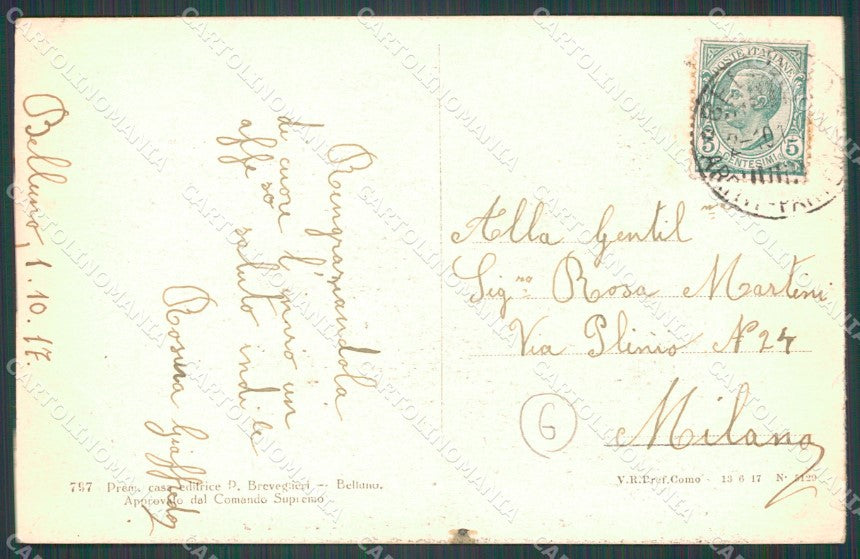 Belluno, 1.10.17.
Ringraziandola
di cuore l'invio un
affe so saluto
Rosina
POSTE ITALIANE
5 5
CENTESIMI
Alla Gentil ma
Sig na Rosa Martini
Via Plinio N 24
6
Milano
797 Prem. casa editrice P. Breveglieri - Belluno.
Approvato dal Comando Supremo
V.R.Pref.Como - 13 6 17 N. 5129
CARTOLINOMANIA